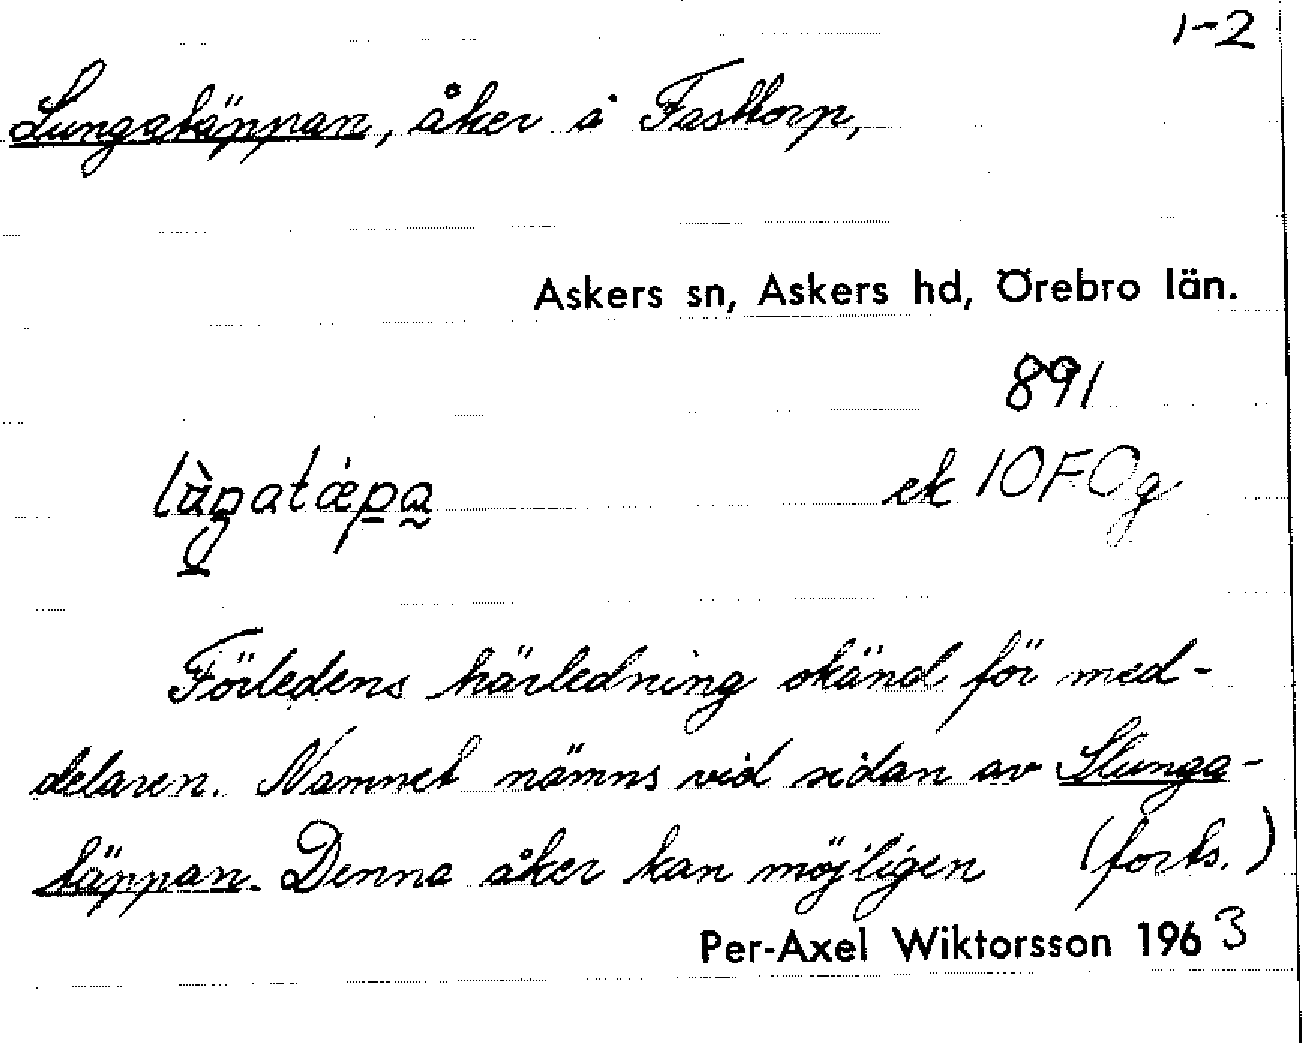 1-2
Lungatäppan, åker i Fasttorp,
Askers sn, Askers hd, Örebro län.
891
ek 10F0g
Förledens härledning okänd för med-
delaren. Namnet nämns vid sidan av Slunga-
täppan. Denna åker kan möjligen (forts.)
Per-Axel Wiktorsson 1963